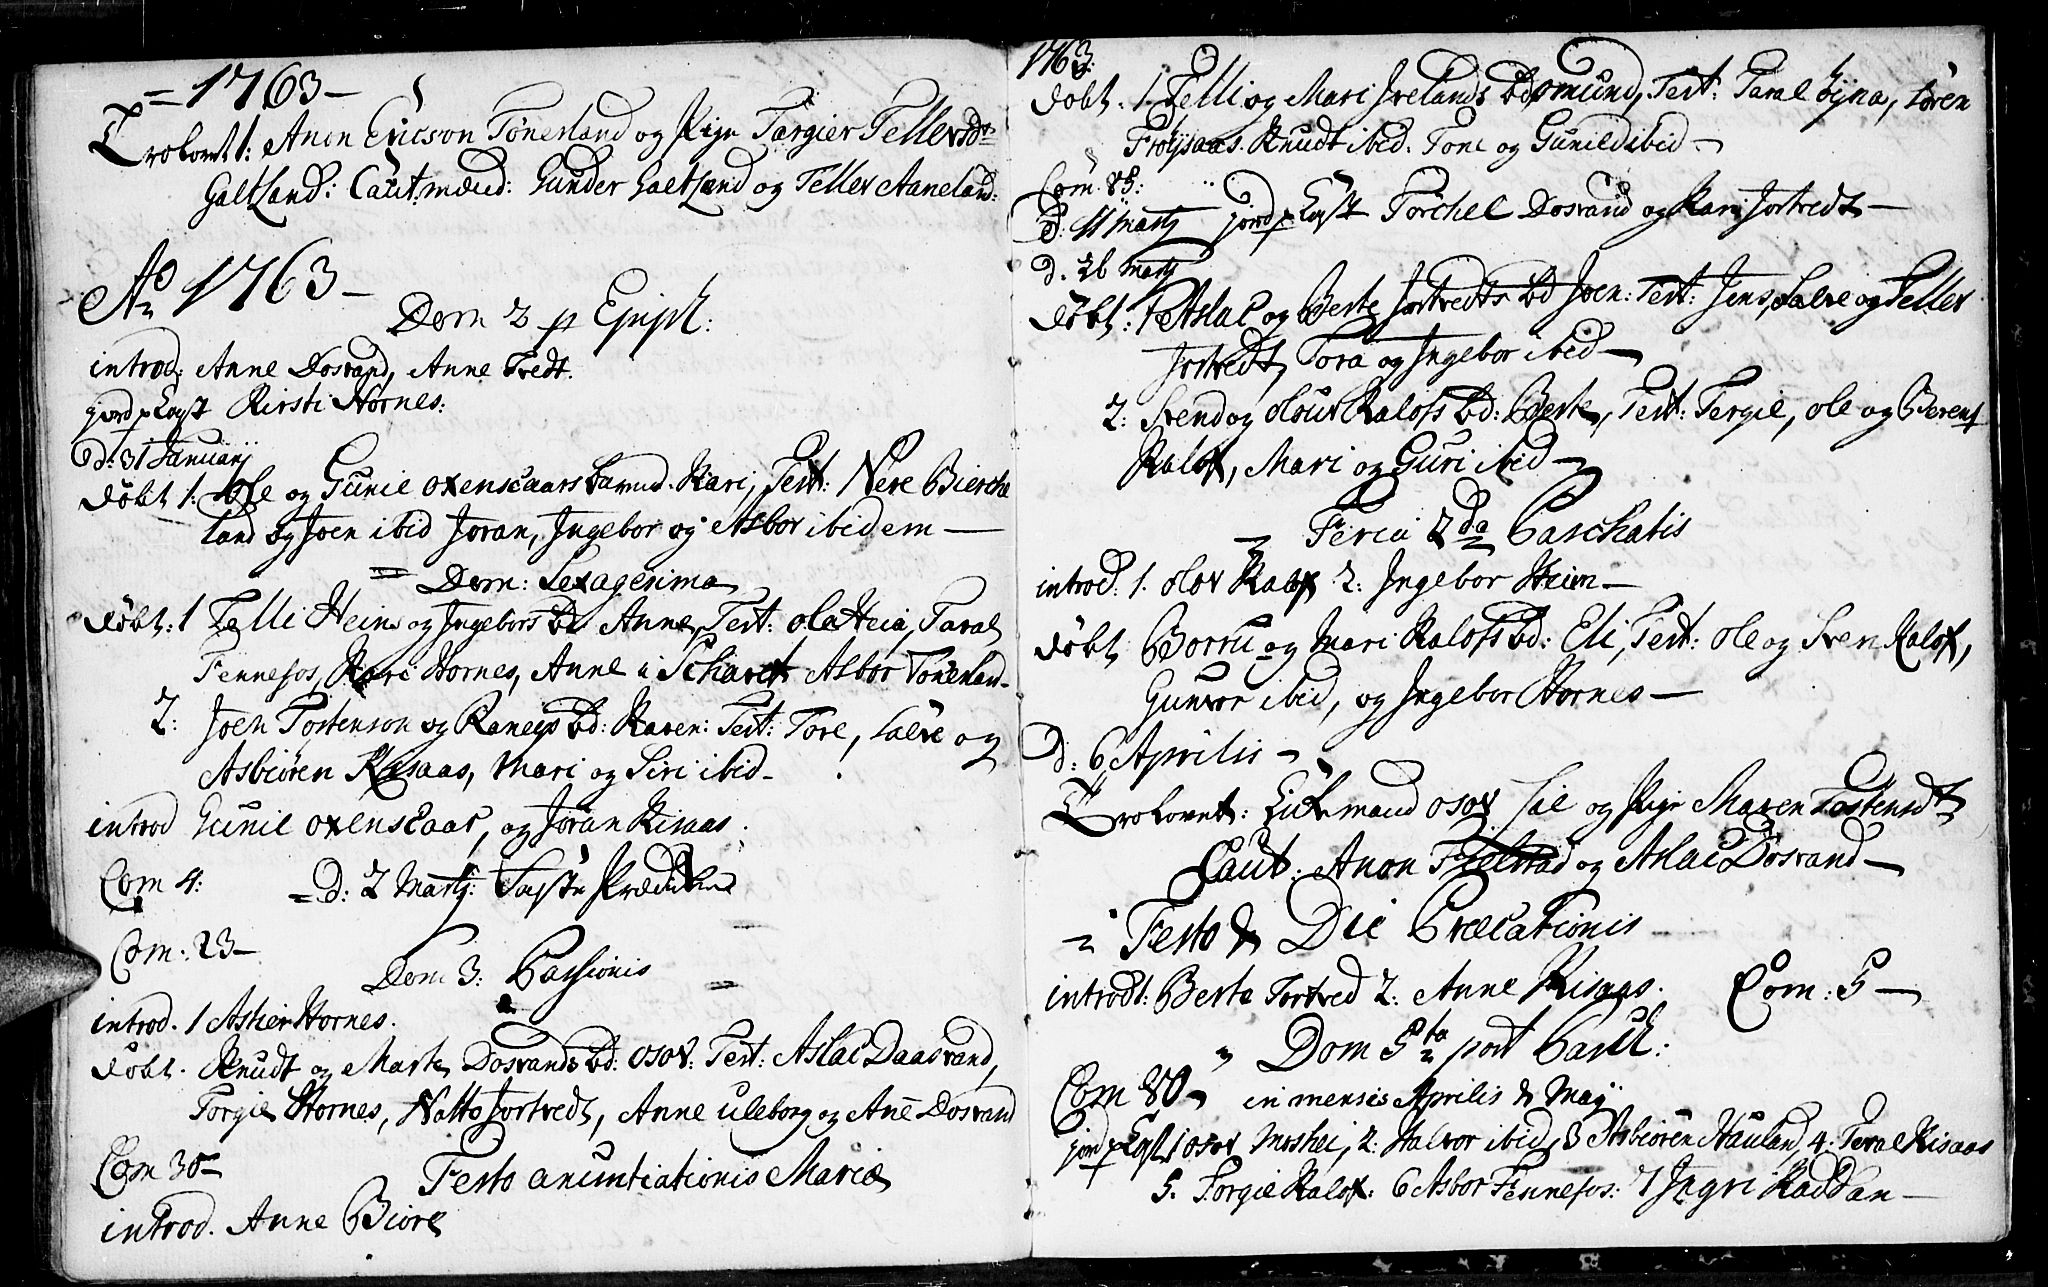 = 1763 -
Trolovet 1: Anon Ericson Tønerland og Pige Targier Tellersdt
Galtland: Caut: mænd: Gunder Galtland og Teller Aaneland:
Ao 1763 -
Dom 2 p Epiph:
introd: Anne Dosvand, Anne Tvedt.
jord p Kast Kirsti Hornes:
D: 31 Januarij
døbt 1: Ole og Gunil Oxenscaars barn d. Kari, Test: Nere Bierche
land og Joen ibid Joran, Ingebor og Asbor ibidem -
= Dom: Sexagesima
døbt: 1 Telli Heims og Ingebors bd Anne, Test: Ola Heia, Taral
Fennefos, Kari Hornes, Anne i Scharet Asbor Tønerland -
2: Joen Tostenson og Ranegs bd: Karen: Test: Tore, Salve og
Asbiøren Risaas, Mari og Siri ibid -
introd Gunil Oxenscaar, og Joran Risaas.
Com 4: = D: 2 Martij: Faste Prædiken
Com: 23 -
Dom 3: Passionis
introd. 1 Asher Hornes.
døbt. Knudt og Marte Dosvands bd: Osov: Test: Aslac Daasvand,
Torgie Hornes, Natto Jortvedt, Anne Uleborg og Ane Dosvand
Com 30 -
Festo Anuntiationis Mariæ
introd. Anne Biore
1763:
døbt: 1 Telli og Mari Ivelands bd Omund, Test: Taral , Søren
Frøysaas. Knudt ibid. Tone og Gunild ibid -
Com 85:
D: 11 Martij jord p Kast Torchel Dosvand og Kari Jortvedt -
D. 26 Martij
døbt: 1 Aslac og Berte Jortvedts bd Joen: Test: Jens, Salve og Teller
Jortvedt, Tora og Ingebor ibid -
2: Svend og Olouv Kalofs bd: Berte, Test: Tergie, Ole og Berent
Kalof, Mari og Guri ibid -
= Feria 2da Paschatis
introd: 1. Olov Kalof 2: Ingebor Heim -
døbt Borru og Mari Kalofs bd: Eli, Test: Ole og Sven Kalof,
Gunvor ibid, og Ingebor Hornes -
D: 6 Aprilis -
Trolovet: Enkemand Osov og Pige Maren Tostensdt
Caut: Anon Fielstad og Aslac Dosvand -
= Festo & Die Præcationis
introdt: Berte Jortved 2: Anne Risaas. Com: 5 -
Dom 5ta post Pasch:
Com 80 - in mensis Aprilis & Maij
jord p Kast 1 Osov Moshei, 2: Halvor ibid, 3 Asbiøren Hauland, 4: Teral Risaas
5. Torgie Kalof: 6 Asbor Fennefos: 7 Ingri Raddan -